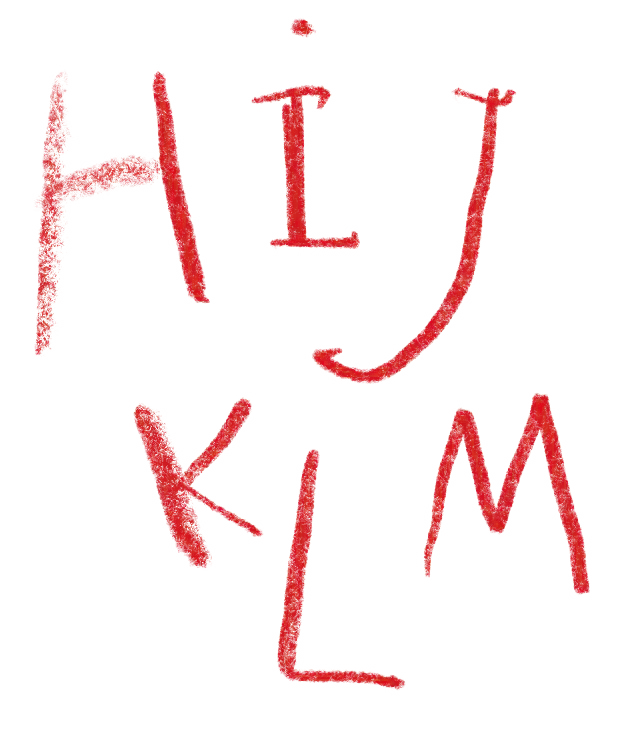 HiJ
KLM